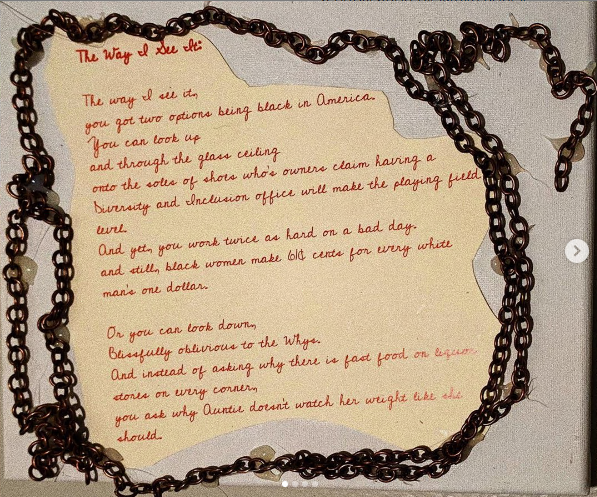 The Way I See It:
The way I see it,
you got two options being black in America.
You can look up
and through the glass ceiling
onto the soles of shoes who's owners claim having a
Diversity and Inclusion office will make the playing field
level.
And yet, you work twice as hard on a bad day.
and still, black women make 61¢ cents for every white
man's one dollar.
Or you can look down,
Blissfully oblivious to the Whys.
And instead of asking why there is fast food on liquor
stores on every corner,
you ask why Auntie doesn't watch her weight like she
should.